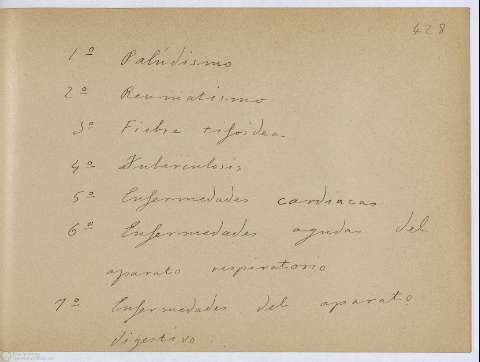 428
1º Palúdismo
2º Reumatismo
3º Fiebre tifoidea
4º Tuberculosis
5º Enfermedades cardiacas
6º Enfermedades agudas del
aparato respiratorio
7º Enfermedades del aparato
digestivo.